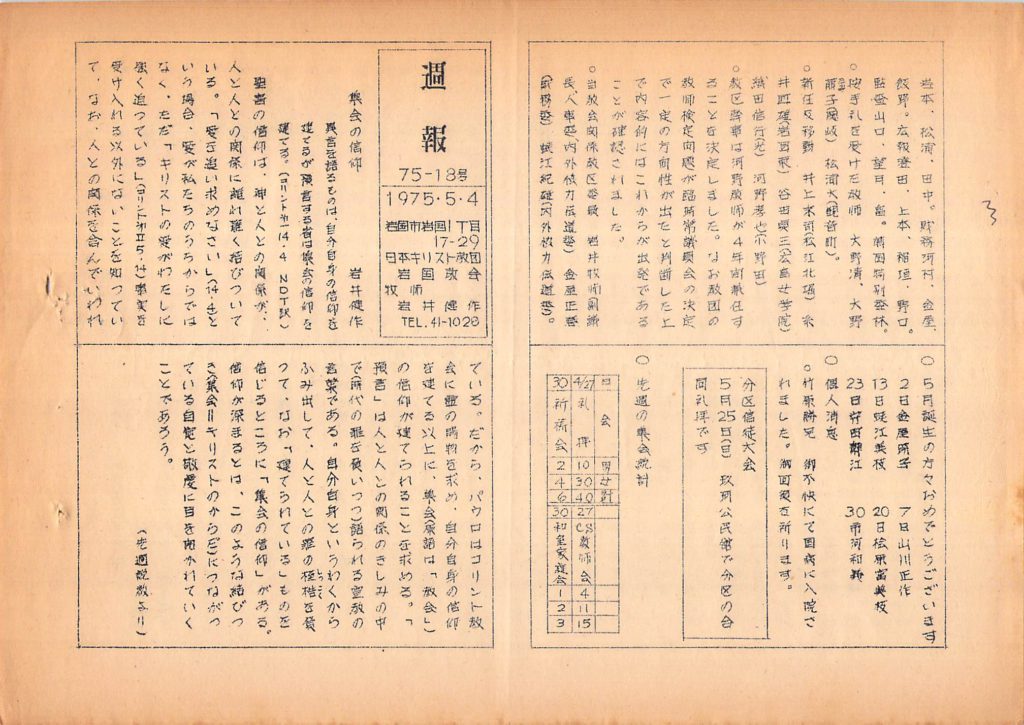 週報
75-18号
1975・5・4
岩国市岩国1丁目
17-29
日本キリスト教団
岩国教会
牧師
岩井健作
TEL.41-1028
集会の信仰
岩井健作
異言を語るものは、自分自身の信仰を
建てるが預言する者は集会の信仰を
建てる。(コリント第一14.4 NDT訳)
聖書の信仰は、神と人との関係が、
人と人との関係に離れ難く結びついて
いる。「愛を追い求めなさい」(14.1)と
いう場合、愛が私たちのうちからでは
なく、ただ「キリストの愛がわたしに
強く迫っている」(コリント第Ⅱ5.14)事実を
受け入れる以外にないことを知ってい
て、なお、人との関係を含んでいわれ
ている。だから、パウロはコリント教
会に霊の賜物を求め、自分自身の信仰
を建てる以上に、集会(原語は「教会」)
の信仰が建てられることを求める。「
預言」は人と人との関係のきしみの中
で(時代の罪を負いつつ)語られる宣教の
言葉である。自分自身というわくから
ふみ出して、人と人との罪の桎梏を負
って、なお「建てられている」ものを
信じるところに「集会の信仰」がある。
信仰が深まるとは、このような結びつ
き(集会=キリストのからだ)につながっ
ている自覚と敬虔に目を開かれていく
ことであろう。
(先週説教より)
3
岩本、松浦、田中。財務河村、金屋、
飯野。広報登田、上本、稲垣、野口。
監査山口、望月、畠。
按手礼を受けた教師 大野清、大野
新任及移動 井上末司(松江北堀)
井皿雄(岩国東) 谷田要三(広島女学院)
織田信行(光) 河野孝也(小野田)
教区幹事は河野教師が4年間兼任す
ることを決定しました。なお教団の
教師検定問題が臨時常議員会の決定
で一定の方向性が出たと判断した上
で内容的にはこれからが出発である
ことが確認されました。
当教会関係教区委員 岩井牧師(
長、人事部、内外協力伝道 金屋正吾
(財務部) 蜆江紀雄(内外協力伝道部)。
○5月誕生の方々おめでとうございます
2日金屋 7日山川正作
13日蜆江美枝 20日桧原富美枝
23日 30市河和
○個人消息
○竹原勝児 御不快にて国病に入院さ
れました。御回復を祈ります。
分区信徒大会
5月25日(日) 玖珂公民館で分区の合
同礼拝です
○先週の集会統計
日 会 男 女 計
4/27 礼拝 10 30 40
30 祈祷会 2 4 6
27 CS教師会 4 11 15
30 和皇家庭会 1 2 3